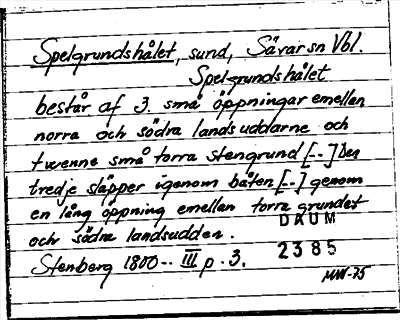 Spelgrundshålet, sund, Sävar sn Vbl.
Spelgrundshålet
består af 3. små öppningar emellan
norra och södra landsuddarne och
twenne små torra stengrund [--] Den
tredje släpper igenom båten [--] genom
en lång öppning emellan torra grundet
och södra landsudden.
DAUM
Stenberg 1800-- III p. 3.
2385
MW-75